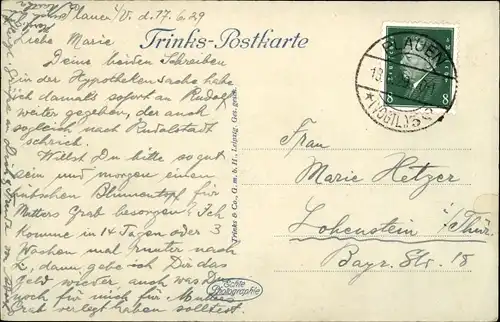 Plauen i/V. d. 17.6.29
Trinks-Postkarte
Liebe Marie
Deine beiden Schreiben
in der Hypothekensache habe
ich damals sofort an Rudolf
weiter gegeben, der auch
sogleich nach Rudolstadt
schrieb.
Willst Du bitte so gut
sein und morgen einen
hübschen Blumentopf für
Mutters Grab besorgen. Ich
komme in 14 Tagen oder 3
Wochen mal runter nach
L., dann gebe ich Dir das
Geld wieder, auch was Du
noch für mich für Mutters
Grab verlegt haben solltest.
Trinks & Co., G. m. b. H., Leipzig. Ges. gesch.
Echte
Photographie
PLAUEN
(VOGTL)
8 8
Frau
Marie Hetzer
Lobenstein i/Thür.
Bayr. Str. 18